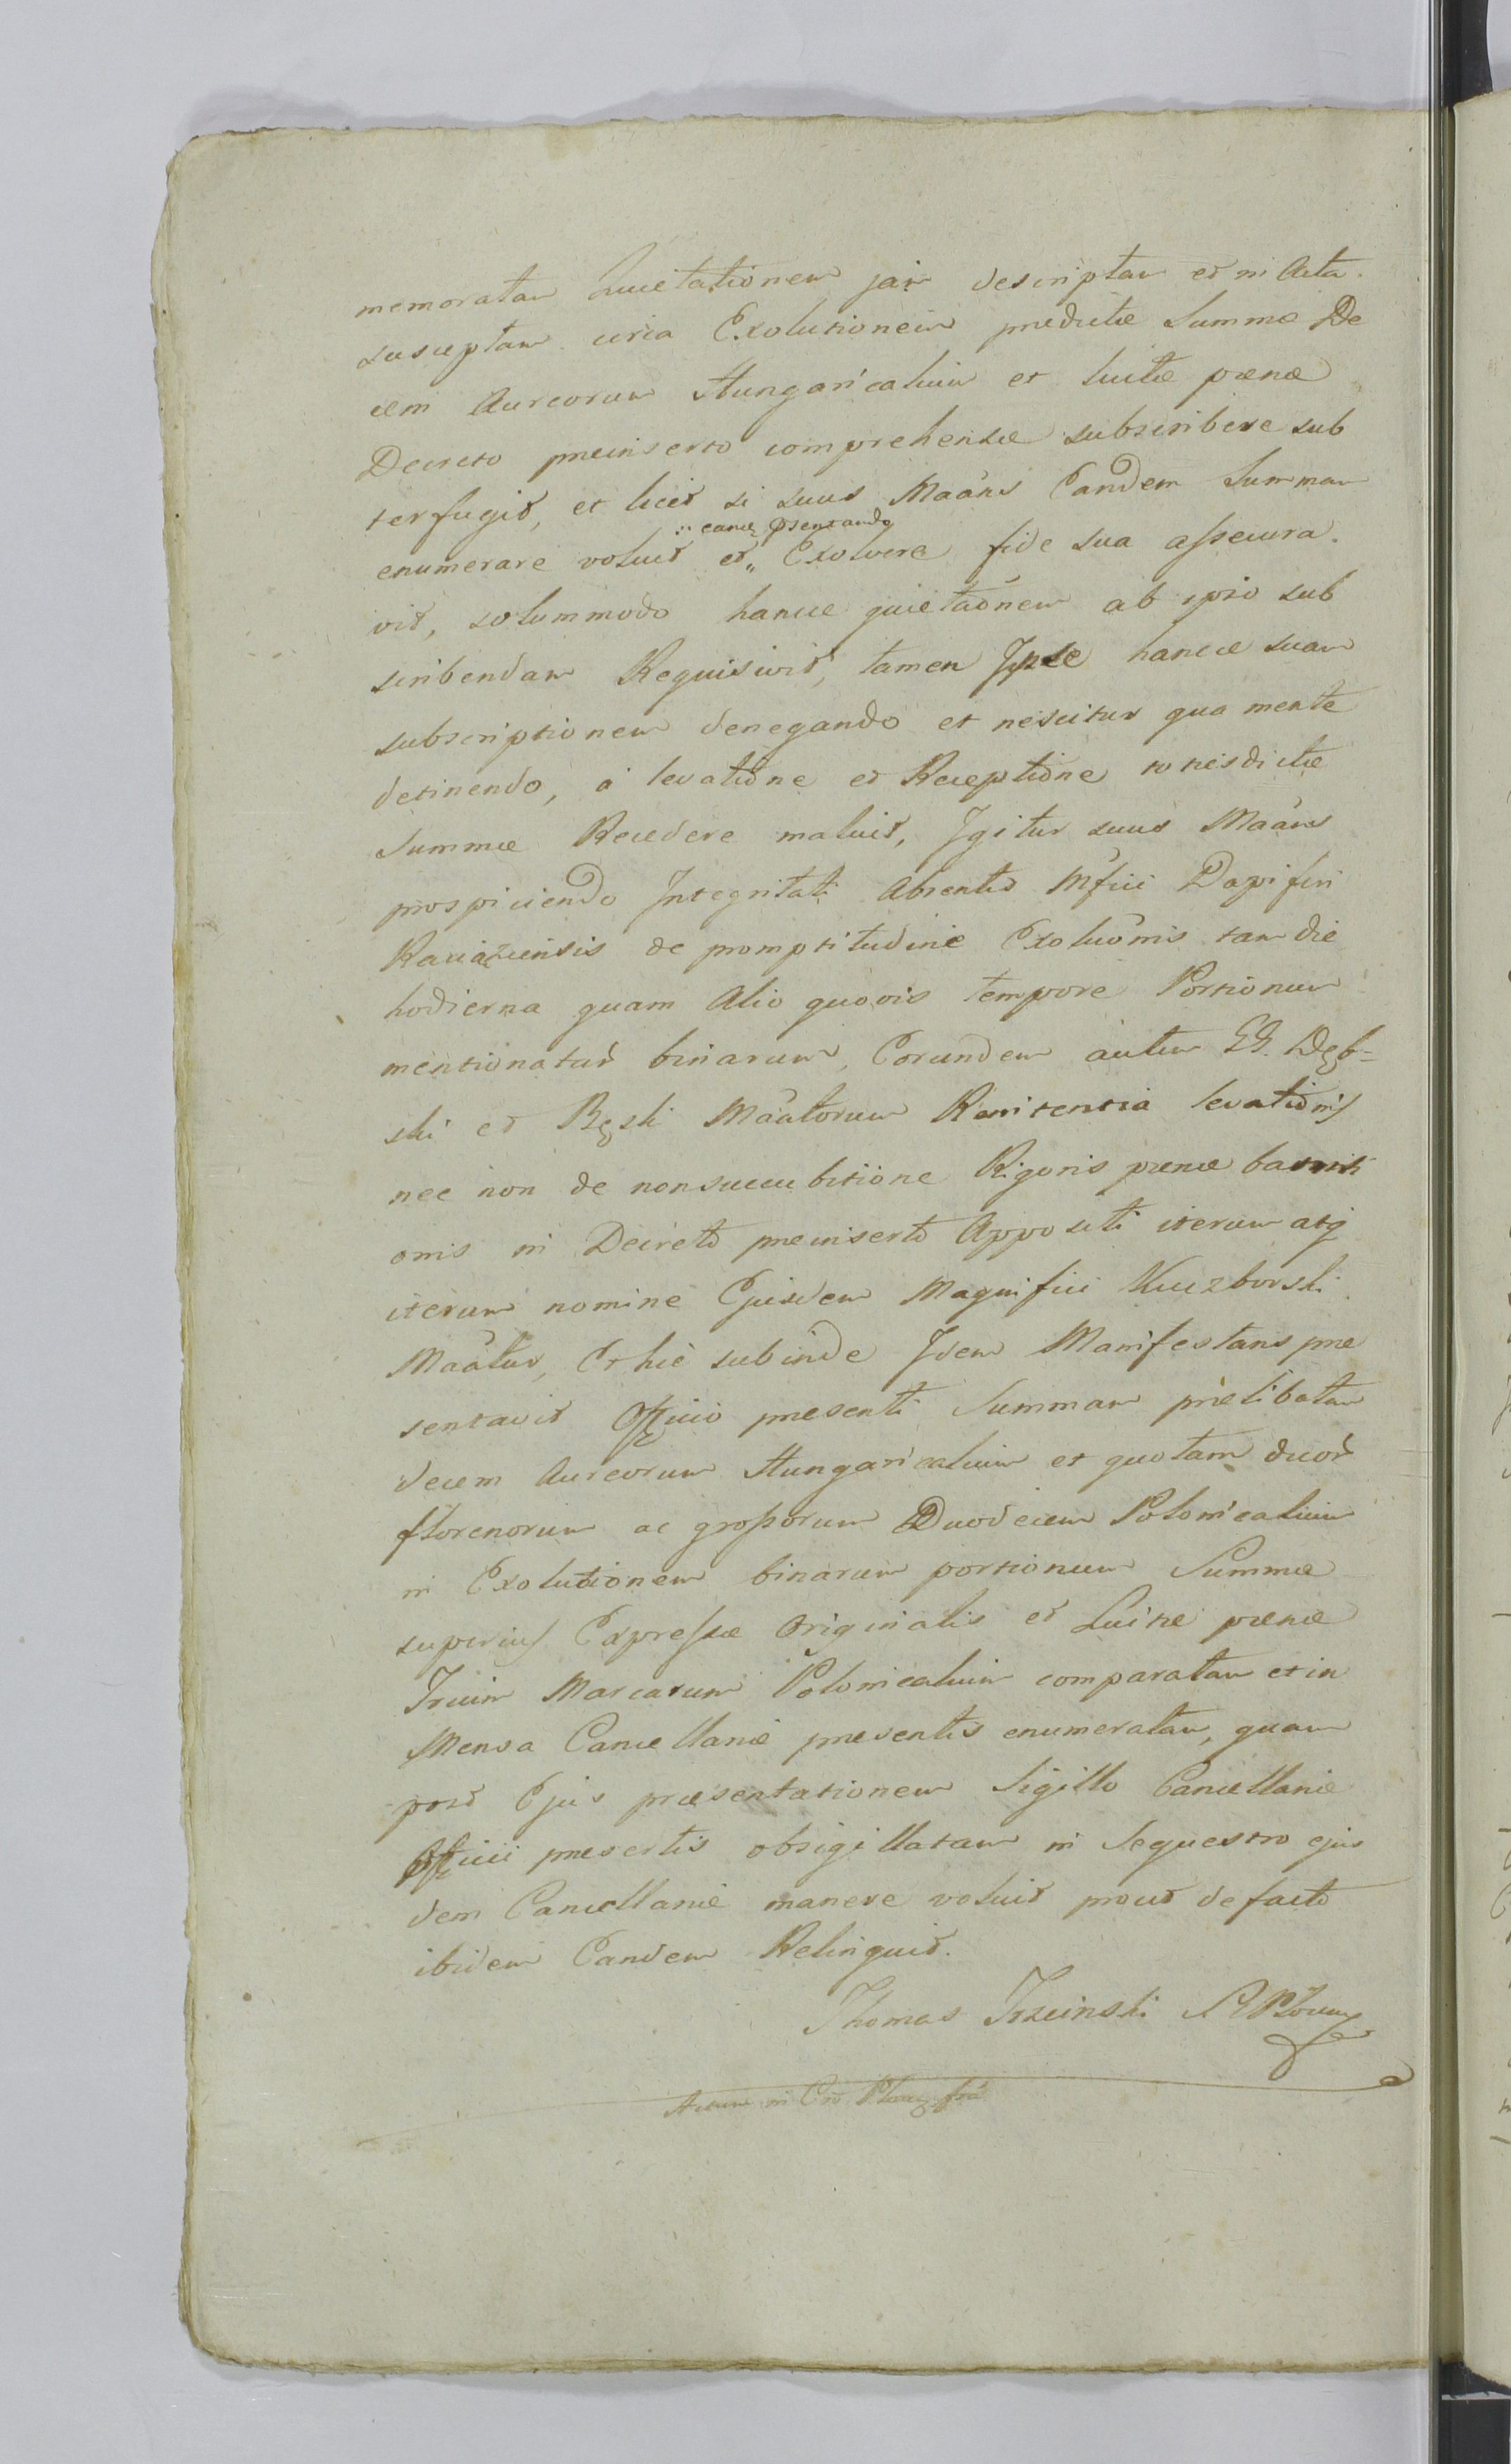 memoratam Quietationem jam descriptam et in Acta
susceptam circa Exolutionem predictæ Summæ De
cem Aureorum Hungaricalium et luitæ pœnæ
Decreto preinserto comprehensæ subscribere sub
terfugit, et licet si suus Maāns Eandem Summam
:: eamq̨ psentando
enumerare voluit et,, Exolvere fide sua assecura.
vit, solummodo hancce quietaōnem ab ipso sub
scribendam Requisivit, tamen Ipse hancce suam
subscriptionem denegando et nescitur qua mente
detinendo, à levatione et Receptione totiesdictæ
Summæ Recedere maluit, Igitur suus Maāns
prospiciendo Integritati Absentis Mfici Dapiferi
Raciązensis de promptitudine Exoluōnis tam die
hodierna quam Alio quovis tempore Portionum
mentionatar̃ binarum, Eorundem autem GG. Dęb=
ski et Bęski Maātorum Renitentia levationis
nec non de nonsuccubitione Rigoris pœnæ banniti
onis in Decreto preinserto Appositi iterum atq̨
iterum nomine Ejusdem Magnifici Kuczborski
Maātur, Et hic subinde Idem Manifestans pre
sentavit Officio presenti Summam prælibatam
decem Aureorum Hungaricalium et quotam duor̃
florenorum ac grossorum Duodecem Polonicalium
in Exolutionem binarum portionum Summæ
superius Expressæ Originalis et Luitæ pœnæ
Trium Marcarum Polonicalium comparatam et in
Mensa Cancellariæ presentis enumeratam, quam
post Ejus præsentationem Sigillo Cancellariæ
Officii presentis obsigillatam in Sequestro ejus
dem Cancellariæ manere voluit prout de facto
ibidem Eandem Relinquit.
Thomas Trzcinski